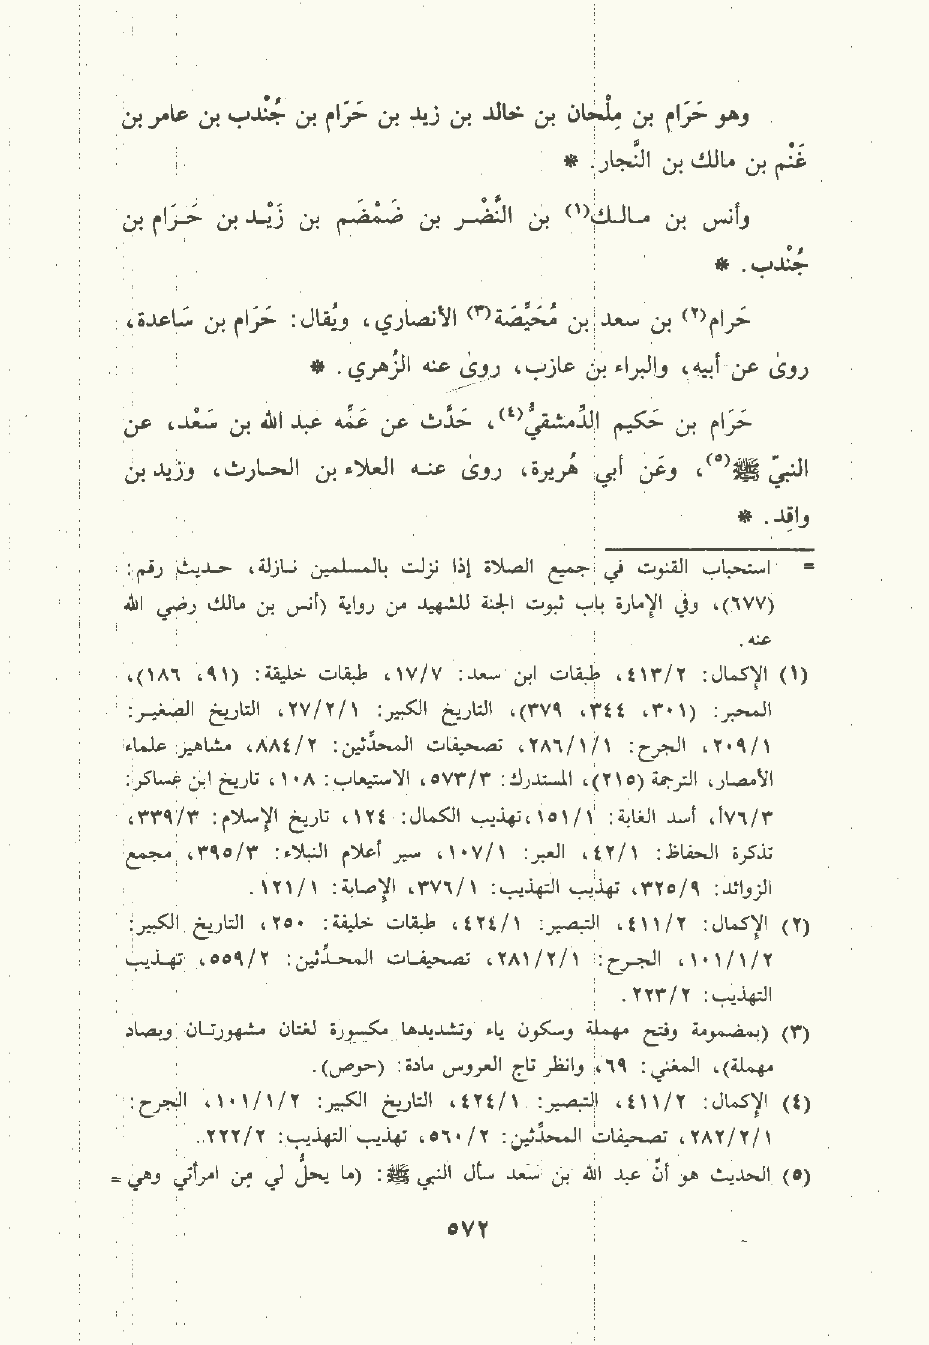 وهو حَرَام بن مِلْحان بن خالد بن زيد بن حَرَام بن جُنْدب بن عامر بن
غَنْم بن مالك بن النَّجار. *
وأنس بن مالك(١) بن النَّضْر بن ضَمْضَم بن زَيْد بن حَرَام بن
جُنْدب. *
حَرام(٢) بن سعد بن مُحَيِّصَة(٣) الأنصاري، ويُقال: حَرَام بن سَاعدة،
روىٰ عن أبيه، والبراء بن عازب، روىٰ عنه الزُهري. *
حَرَام بن حَكيم الدِّمشقيُّ(٤)، حَدَّث عن عَمِّه عبد الله بن سَعْد، عن
النبيّ ﷺ(٥)، وعَن أبي هُريرة، روىٰ عنه العلاء بن الحارث، وزيد بن
واقِد. *
= استحباب القنوت في جميع الصلاة إذا نزلت بالمسلمين نازلة، حديث رقم:
(٦٧٧)، وفي الإمارة باب ثبوت الجنة للشهيد من رواية (أنس بن مالك رضي الله
عنه.
(١) الإكمال: ٤١٣/٢، طبقات ابن سعد: ١٧/٧، طبقات خليفة: (٩١، ١٨٦)،
المحبر: (٣٠١، ٣٤٤، ٣٧٩)، التاريخ الكبير: ٢٧/٢/١، التاريخ الصغير:
٢٠٩/١، الجرح: ٢٨٦/١/١، تصحيفات المحدِّثين: ٨٨٤/٢، مشاهير علماء
الأمصار، الترجمة (٢١٥)، المستدرك: ٥٧٣/٣، الاستيعاب: ١٠٨، تاريخ ابن عساكر:
٧٦/٣أ، أسد الغابة: ١٥١/١، تهذيب الكمال: ١٢٤، تاريخ الإسلام: ٣٣٩/٣،
تذكرة الحفاظ: ٤٢/١، العبر: ١٠٧/١، سير أعلام النبلاء: ٣٩٥/٣، مجمع
الزوائد: ٣٢٥/٩، تهذيب التهذيب: ٣٧٦/١، الإصابة: ١٢١/١.
(٢) الإكمال: ٤١١/٢، التبصير: ٤٢٤/١، طبقات خليفة: ٢٥٠، التاريخ الكبير:
١٠١/١/٢، الجرح: ٢٨١/٢/١، تصحيفات المحدِّثين: ٥٥٩/٢، تهذيب
التهذيب: ٢٢٣/٢.
(٣) (بمضمومة وفتح مهملة وسكون ياء وتشديدها مكسورة لغتان مشهورتان وبصاد
مهملة)، المغني: ٦٩، وانظر تاج العروس مادة: (حوص).
(٤) الإكمال: ٤١١/٢، التبصير: ٤٢٤/١، التاريخ الكبير: ١٠١/١/٢، الجرح:
٢٨٢/٢/١، تصحيفات المحدِّثين: ٥٦٠/٢، تهذيب التهذيب: ٢٢٢/٢.
(٥) الحديث هو أنّ عبد الله بن سَعد سأل النبي ﷺ: (ما يحلُّ لي مِن امرأتي وهي =
٥٧٢